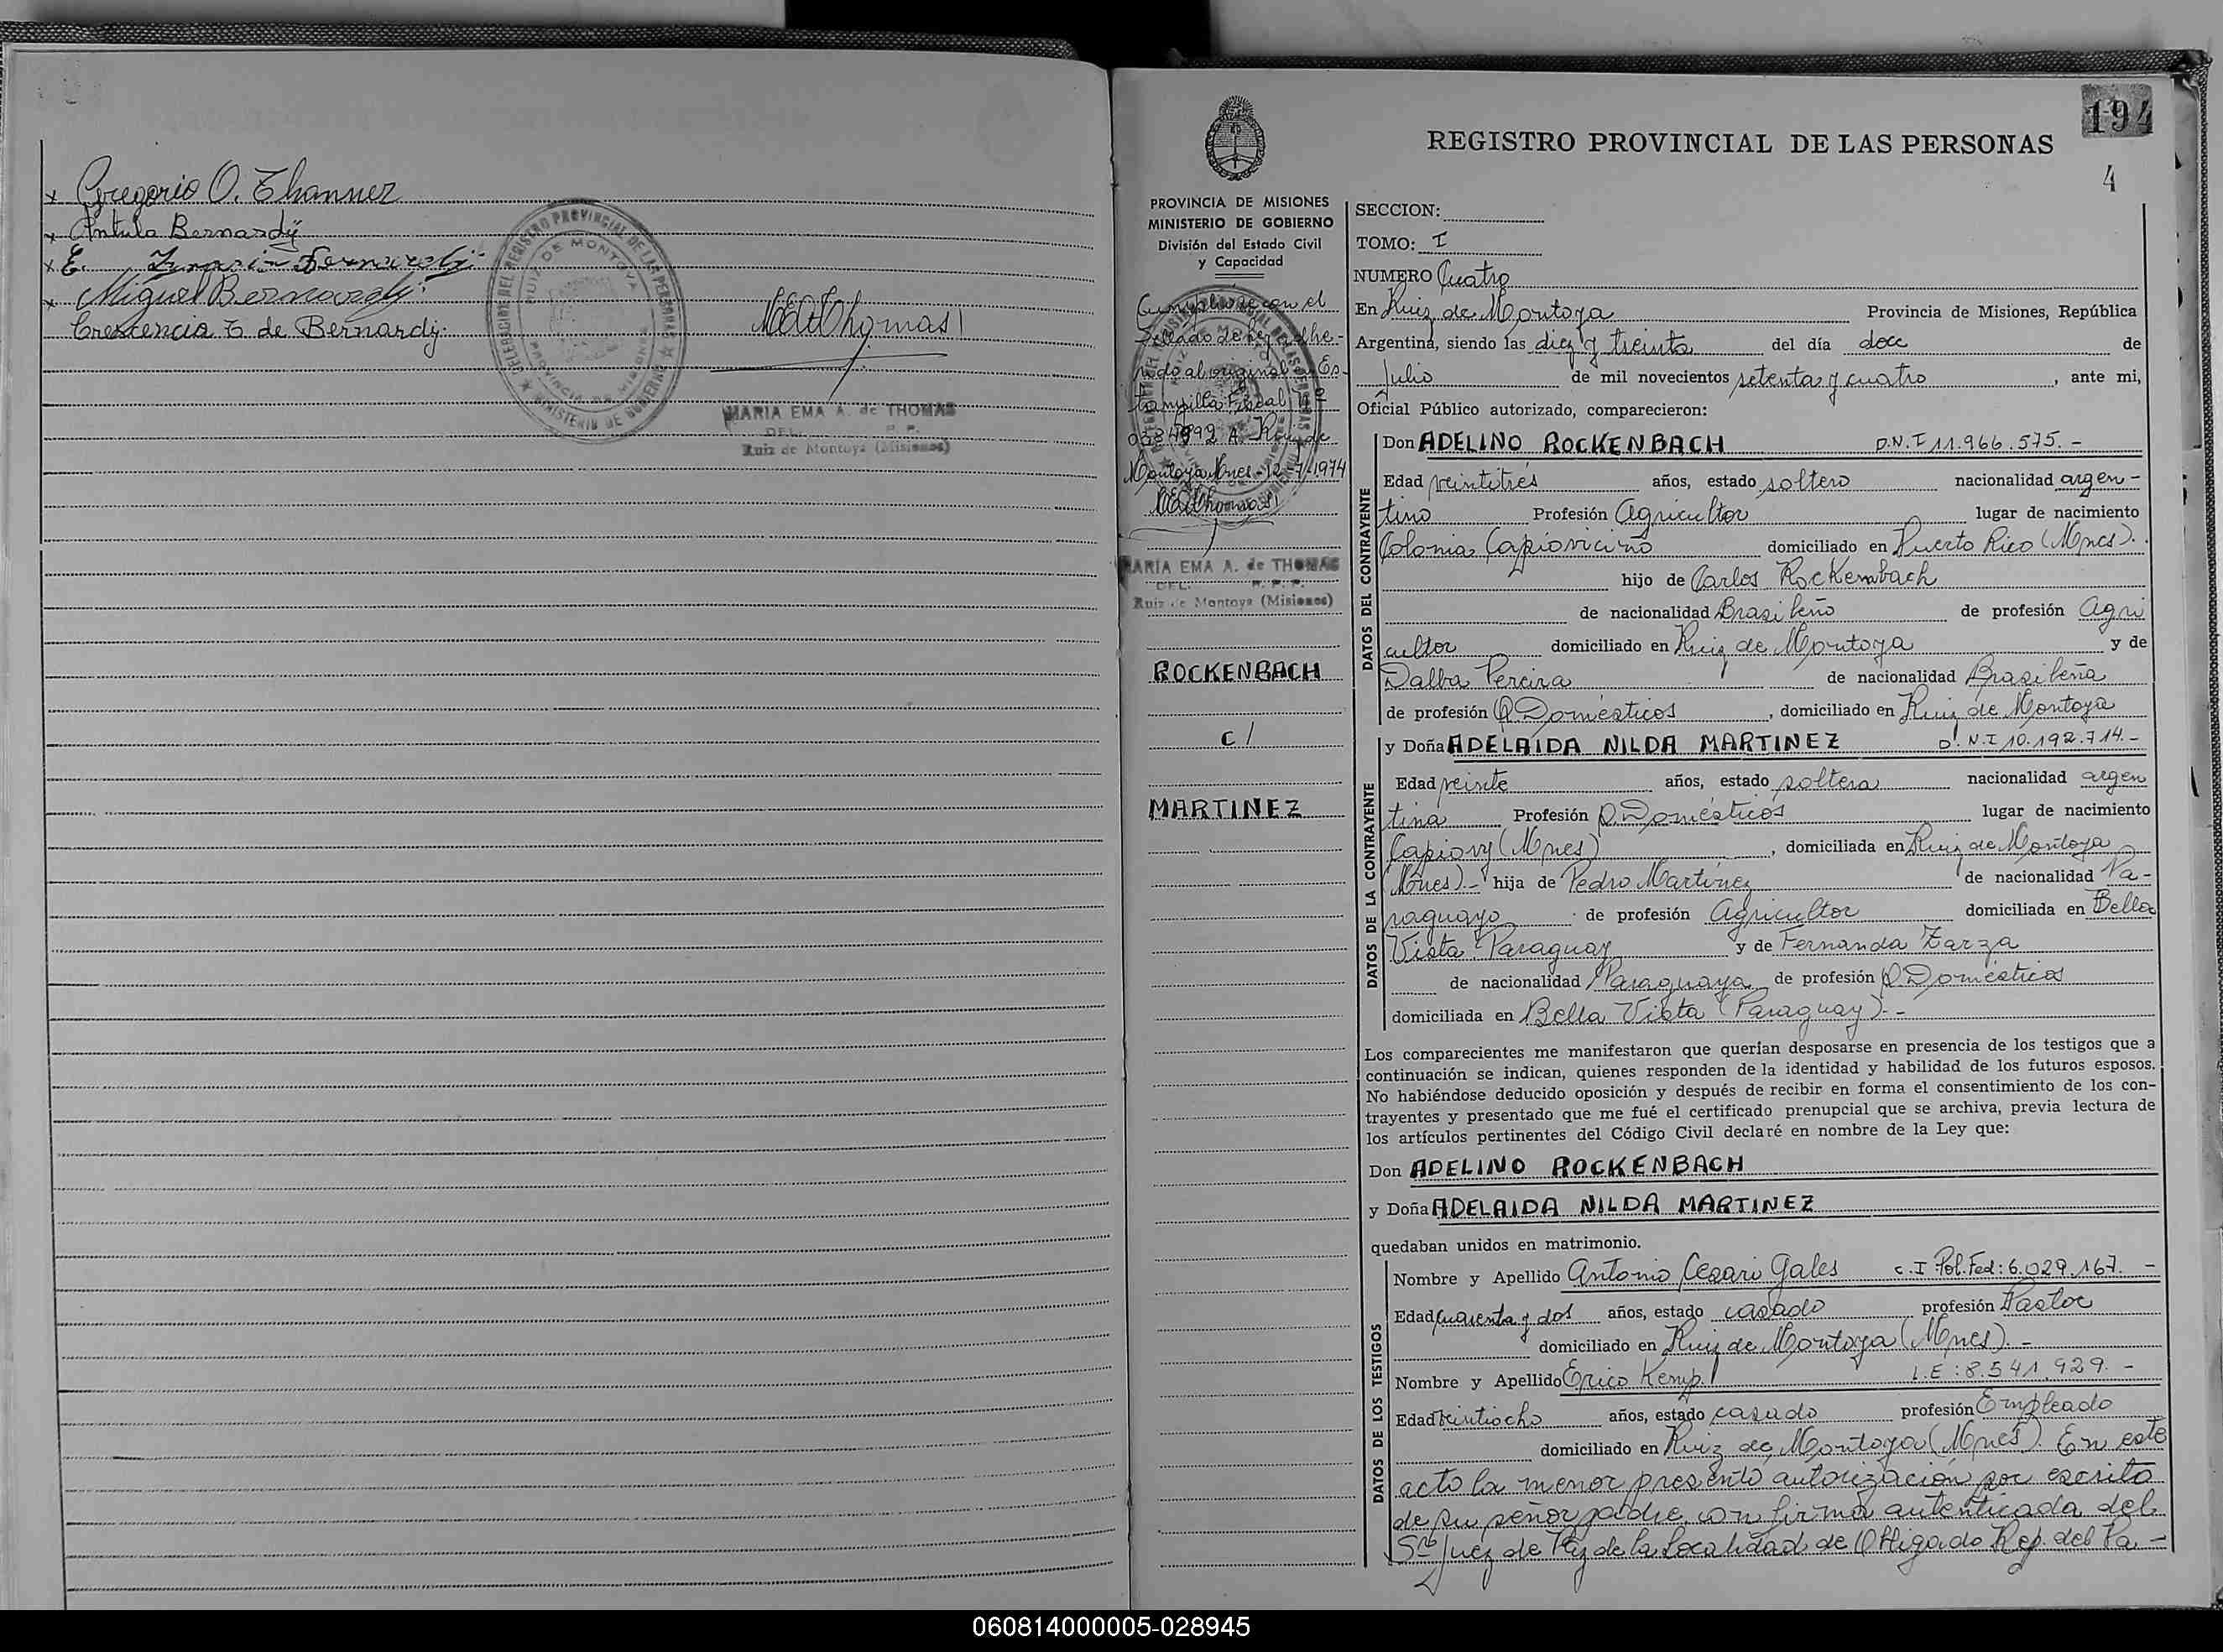 x Gregorio O. Thanner
x Antula Bernardÿ
x E. Bernardÿ
x Miguel Bernardÿ
Crescencia T. de Bernardy
MEAThomas
DELEGACION DEL REGISTRO PROVINCIAL DE LAS PERSONAS
RUIZ DE MONTOYA
PROVINCIA DE MISIONES
MINISTERIO DE GOBIERNO
MARIA EMA A. de THOMAS
DEL. R. P. P.
Ruiz de Montoya (Misiones)
194
REGISTRO PROVINCIAL DE LAS PERSONAS
4
PROVINCIA DE MISIONES
MINISTERIO DE GOBIERNO
División del Estado Civil
y Capacidad
Cumplióse con el
sellado de ley adhe-
rido al original. Es-
tampilla Fiscal Nº
A. Ruiz de
Montoya Mnes.-12-7-1974
MEAThomas
MARIA EMA A. de THOMAS
DEL. R. P. P.
Ruiz de Montoya (Misiones)
ROCKENBACH
c/
MARTINEZ
SECCION:
TOMO: I
NUMERO Cuatro
En Ruiz de Montoya Provincia de Misiones, República
Argentina, siendo las diez y treinta del día doce de
Julio de mil novecientos setenta y cuatro, ante mi,
Oficial Público autorizado, comparecieron:
DATOS DEL CONTRAYENTE
Don ADELINO ROCKENBACH D.N.I 11.966.575.-
Edad veintitrés años, estado soltero nacionalidad argen-
tino Profesión Agricultor lugar de nacimiento
Colonia Capiovicino domiciliado en Puerto Rico (Mnes).
hijo de Carlos Rockembach
de nacionalidad Brasileño de profesión Agri
cultor domiciliado en Ruiz de Montoya y de
Dalba Pereira de nacionalidad Brasileña
de profesión Q. Domésticos, domiciliado en Ruiz de Montoya
DATOS DE LA CONTRAYENTE
y Doña ADELAIDA NILDA MARTINEZ D.N.I 10.192.714.-
Edad veinte años, estado soltera nacionalidad argen
tina Profesión Q. Domésticos lugar de nacimiento
Capiovy (Mnes), domiciliada en Ruiz de Montoya
(Mnes).- hija de Pedro Martínez de nacionalidad Pa-
raguayo de profesión Agricultor domiciliada en Bella
Vista Paraguay y de Fernanda Zarza
de nacionalidad Paraguaya de profesión Q. Domésticos
domiciliada en Bella Vista (Paraguay).-
Los comparecientes me manifestaron que querían desposarse en presencia de los testigos que a
continuación se indican, quienes responden de la identidad y habilidad de los futuros esposos.
No habiéndose deducido oposición y después de recibir en forma el consentimiento de los con-
trayentes y presentado que me fué el certificado prenupcial que se archiva, previa lectura de
los artículos pertinentes del Código Civil declaré en nombre de la Ley que:
Don ADELINO ROCKENBACH
y Doña ADELAIDA NILDA MARTINEZ
quedaban unidos en matrimonio.
DATOS DE LOS TESTIGOS
Nombre y Apellido Antonio Cesari Gales C.I Pol.Fed: 6.029.167.-
Edad cuarenta y dos años, estado casado profesión Pastor
domiciliado en Ruiz de Montoya (Mnes).-
Nombre y Apellido Erico Kemp L.E: 8.541.929.-
Edad veintiocho años, estado casado profesión Empleado
domiciliado en Ruiz de Montoya (Mnes). En este
acto la menor presentó autorización por escrito
de su señor padre, con firma autenticada del
Sr. Juez de Paz de la Localidad de Obligado Rep. del Pa-
060814000005-028945